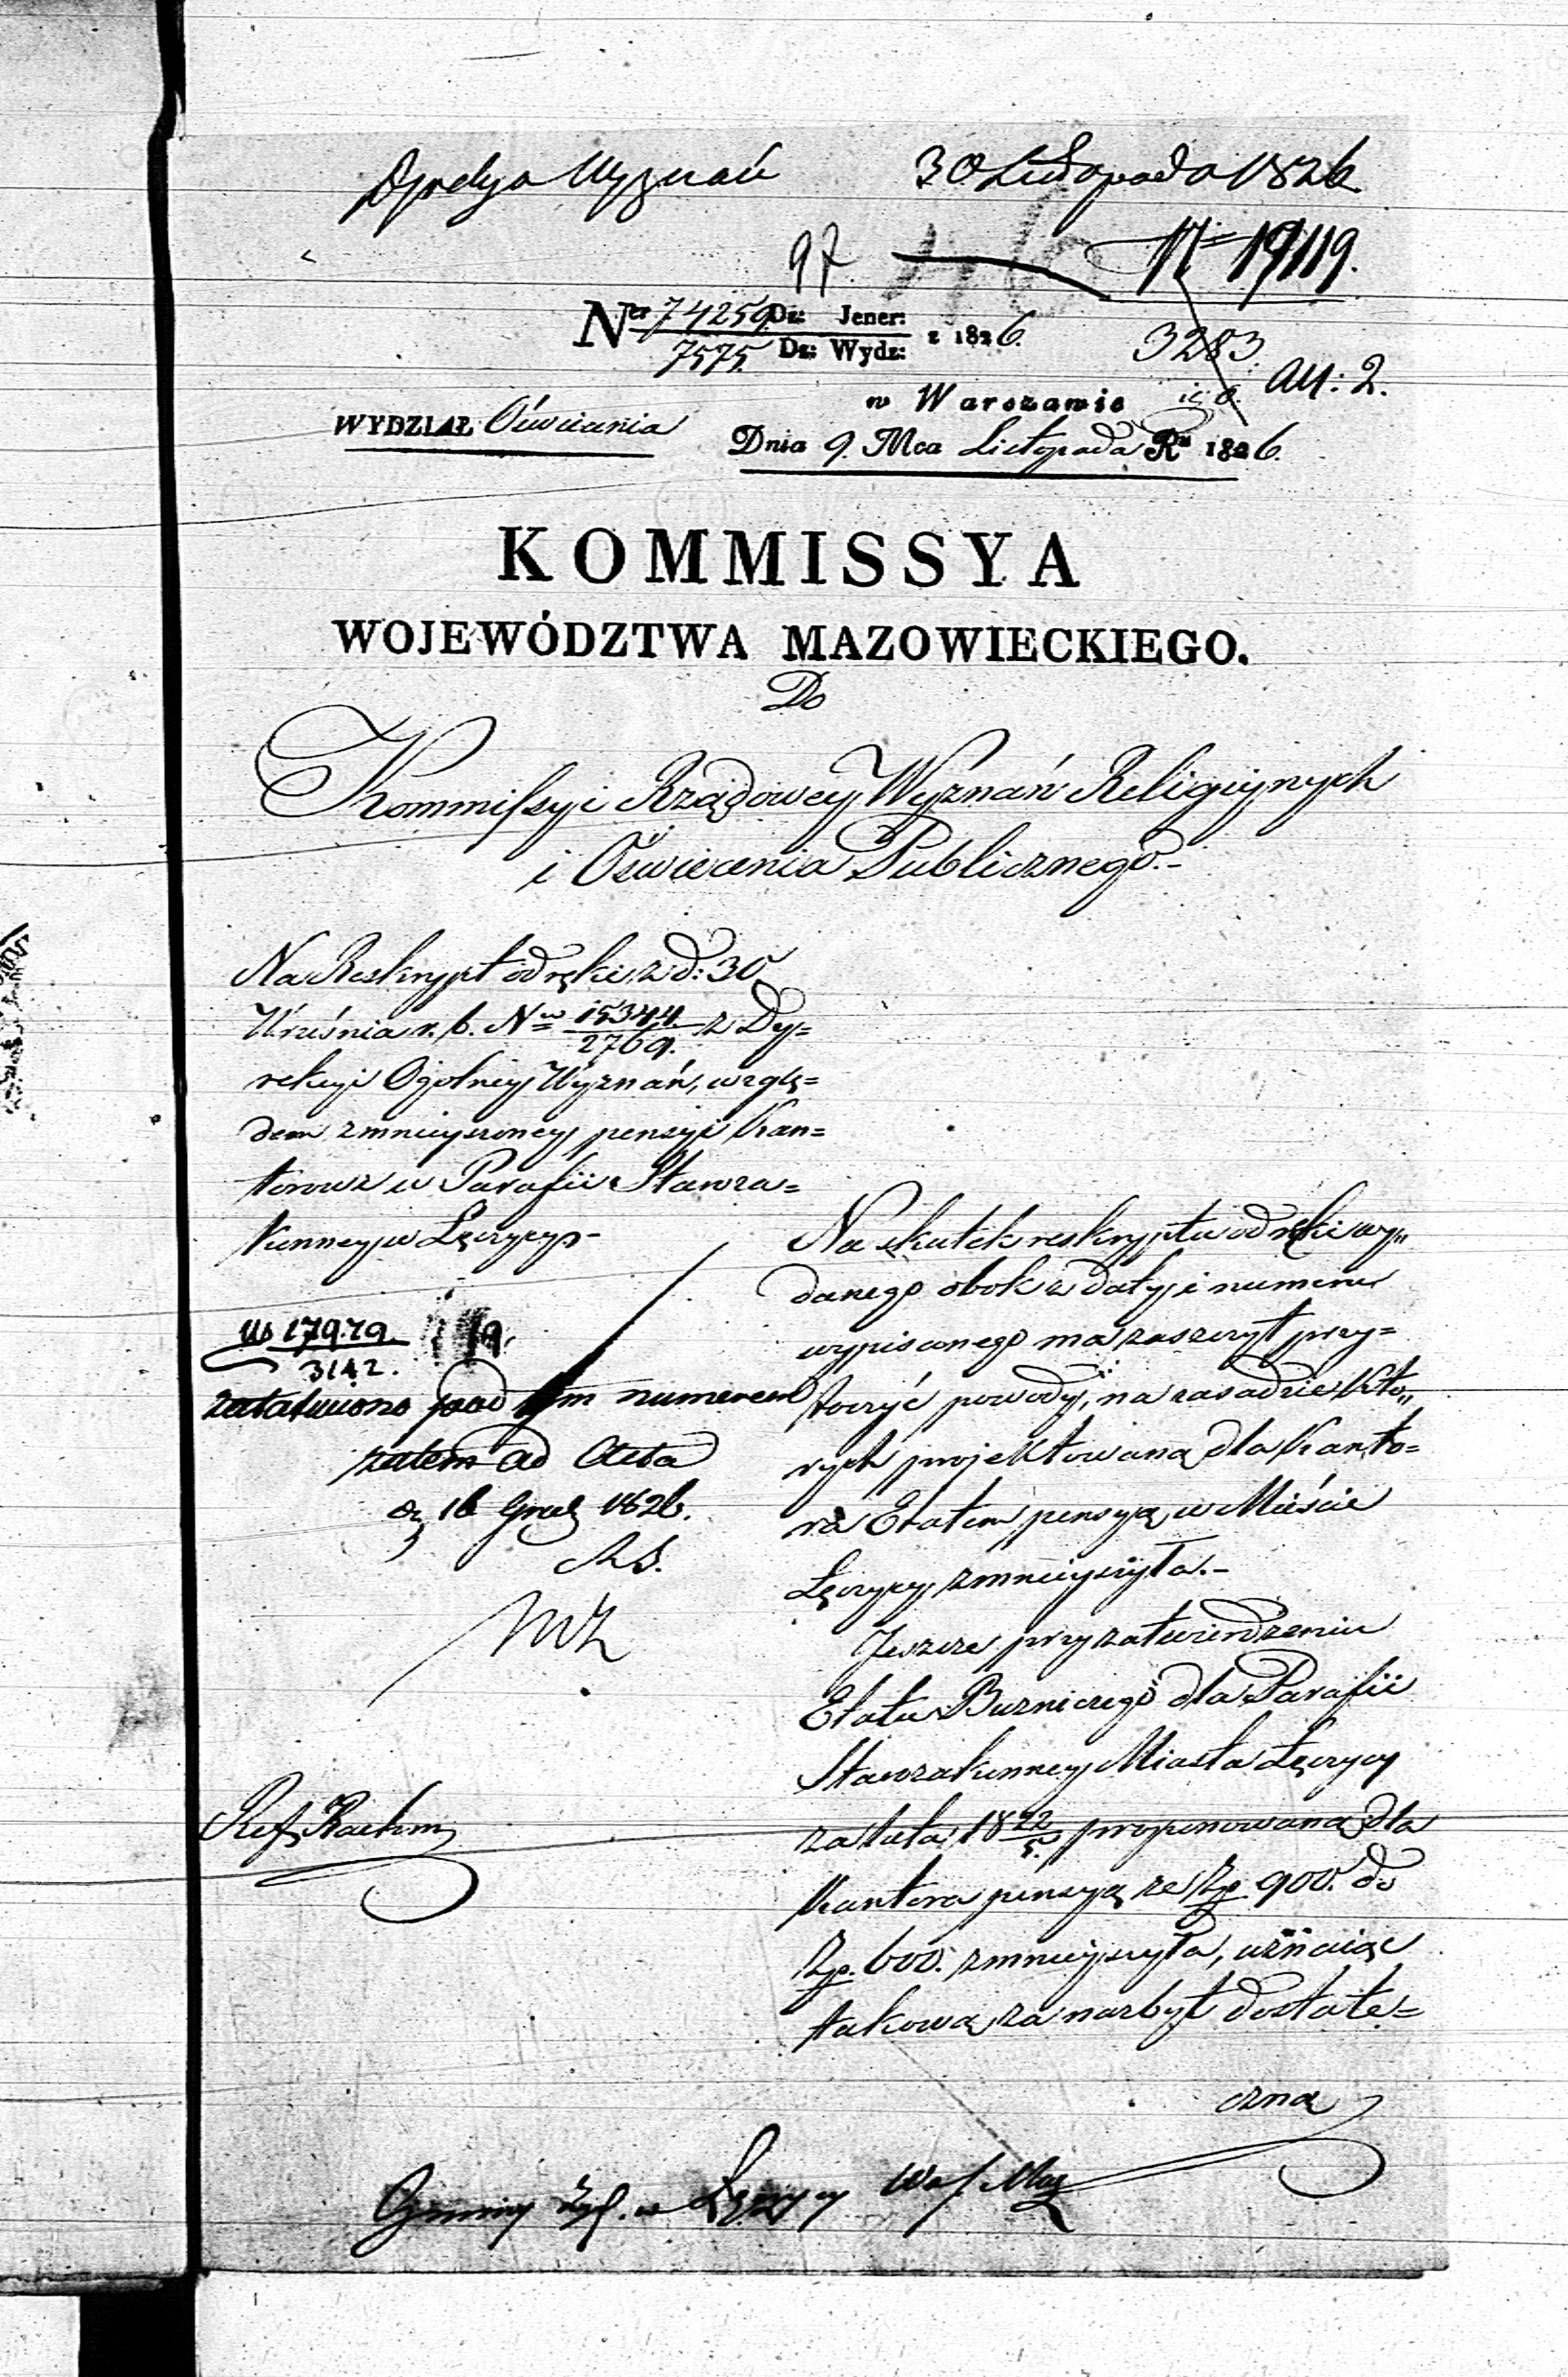 Dyrekcya Wyznań 30 Listopada 1826
97. 46 N= 19119.
Ner 74259 Dz: Jener: z 1826.
7575. Dz: Wydz:
3283.
All: 2.
w Warszawie
WYDZIAŁ Oświecenia
Dnia 9. Mca Listopada Ru 1826.
KOMMISSYA
WOJEWÓDZTWA MAZOWIECKIEGO.
Do
Kommissyi Rządowey Wyznań Religiynych
i Oświecenia Publicznego.-
Na Reskrypt odręki z d: 30
Września r. b. Nw 15344 z Dy=
2769.
rekcyi Ogolney Wyznań, wzglę=
dem zmnieyszoney pensyi Kan=
torowi w Parafii Staroza=
konney w Łęczycy.-
19.
17979.
3142.
załatwiono pod tym numerem
zatem ad Acta
16 Grud 1826.
Na skutek reskryptu odręki wy„
danego obok z daty i numeru
wypisanego ma zaszczyt przy=
toczyć powody, na zasadzie Kto„
rych projektowaną dla Kanto=
ra Etatem pensyą w Mieście
Łęczycy zmnieyszyła.-
Jeszcze przy zatwierdzeniu
Etatu Bużniczego dla Parafii
Starozakonney Miasta Łęczycy
za lata 1822/5. proponowaną dla
Kantora pensyą ze Zp. 900. do
Zp. 600. zmnieyszyła, uznaiąc
takową za nazbyt dostate=
czną
Gminy Żyd. w Łęczycy Wo/ Maz